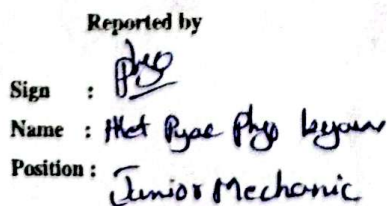 Reported by
Sign : phyo
Name : Htet Pyae Phyo
Position : Junior Mechanic